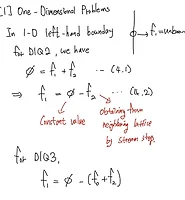 [1] One-Dimensional Problems
In 1-D left-hand boundary
for D1Q2, we have
f₁ = unknown
ϕ = f₁ + f₂ --- (4.1)
⇒ f₁ = ϕ - f₂ --- (4.2)
Constant value
Obtaining from
neighboring lattice
by stream step.
for D1Q3,
f₁ = ϕ - (f₀ + f₂)